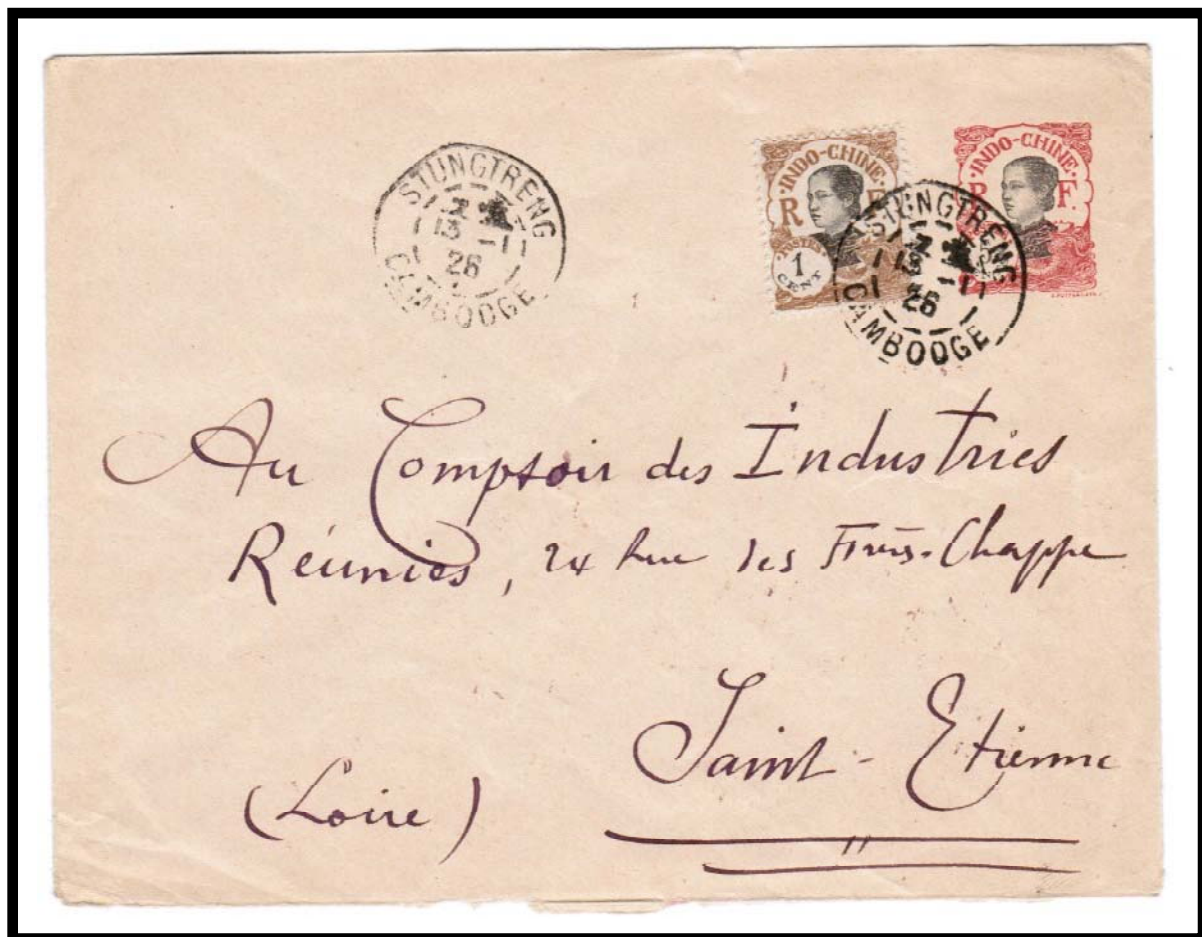 STUNGTRENG
13 -1
26
CAMBODGE
INDO-CHINE
R F
POSTES
1
CENT
STUNGTRENG
13 -1
26
CAMBODGE
INDO-CHINE
R F.
Au Comptoir des Industries
Réunies, 24 Rue des Frères-Chappe
Saint-Etienne
(Loire)